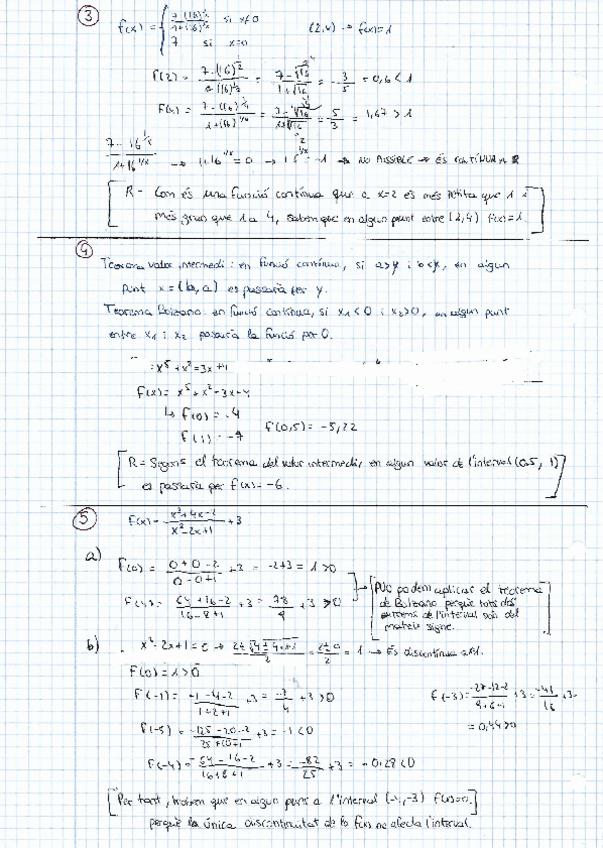 3
f(x) = { 7-(16)^(1/x) / 1+(16)^(1/x) si x≠0
7 si x=0
(2,4) → f(x)=1
f(2) = = 7-√16 / 1+√16 = 3/5 = 0,6 < 1
= 5/3 = 1,67 > 1
7-16^(1/x) / 1+16^(1/x) → 1+16^(1/x) = 0 → → NO POSSIBLE → ÉS CONTÍNUA
R- Com és una funció contínua que a x=2 és més petita que 1 i
més gran que 1 a 4, sabem que en algun punt entre (2,4) f(x)=1.
4
Teorema valor intermedi: en funció contínua, si a>y i b<y, en algun
punt x=(b,a) es passaria per y.
Teorema Bolzano: en funció contínua, si x1<0 i x2>0, en algun punt
entre x1 i x2 passaria la funció per 0.
x⁵+x²-3x+1
f(x)= x⁵+x²-3x+
↳ f(0) = -4
f(0,5) = -5,22
f(1) = -7
R= Segons el teorema del valor intermedi, en algun valor de l'interval (0.5, 1)
es passaria per f(x)=-6.
5
f(x)= x³+4x-2 / x²-2x+1 +3
a)
f(0) = 0+0-2 / 0-0+1 +3 = -2+3 = 1 >0
f(4) = 64+16-2 / 16-8+1 +3 = 78/9 +3 >0
NO podem aplicar el teorema
de Bolzano perquè tots dos
extrems de l'interval són del
mateix signe.
b) x²-2x+1=0 → = 1 → És discontínua a 1.
f(0)=1>0
f(-1) = -1-4-2 / 1+2+1 +3 = -7/4 +3 >0
f(-3) = -27-12-2 / 9+6+1 +3 = -41/16 +3 =
= 0,44>0
f(-5) = -125-20-2 / 25+10+1 +3 = -1 <0
f(-4) = -64-16-2 / 16+8+1 +3 = -82/25 +3 = -0,28<0
Per tant, trobem que en algun punt a l'interval (-4,-3) f(x)=0.
perquè la única discontinuïtat de la f(x) no afecta l'interval.